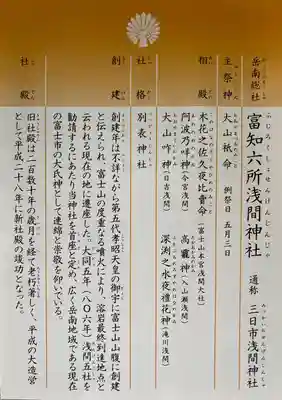 岳南総社
富知六所浅間神社 通称 三日市浅間神社
ふじろくしょせんげんじんじゃ
主祭神 大山祇命 例祭日 五月三日
相殿 木花之佐久夜比賣命(富士山本宮浅間大社)
阿波乃咩命(今宮浅間) 高靇神(入山瀬浅間)
大山咋神(日吉浅間) 深渕之水夜禮花神(滝川浅間)
社格 別表神社
創建 創建年は不詳ながら第五代孝昭天皇の御宇に富士山山腹に創建
と伝えられ、富士山の度重なる噴火により、溶岩最終到達地点と
云われる現在の地に遷座した。大同五年(八〇六年)浅間五社を
勧請するにあたり当神社を首座と定め、広く岳南地域である現在
の富士市の大氏神として連綿と崇敬を仰いている。
社殿 旧社殿は二百数十年の歳月を経て老朽著しく、平成の大造営
として平成二十八年に新社殿の竣功となった。